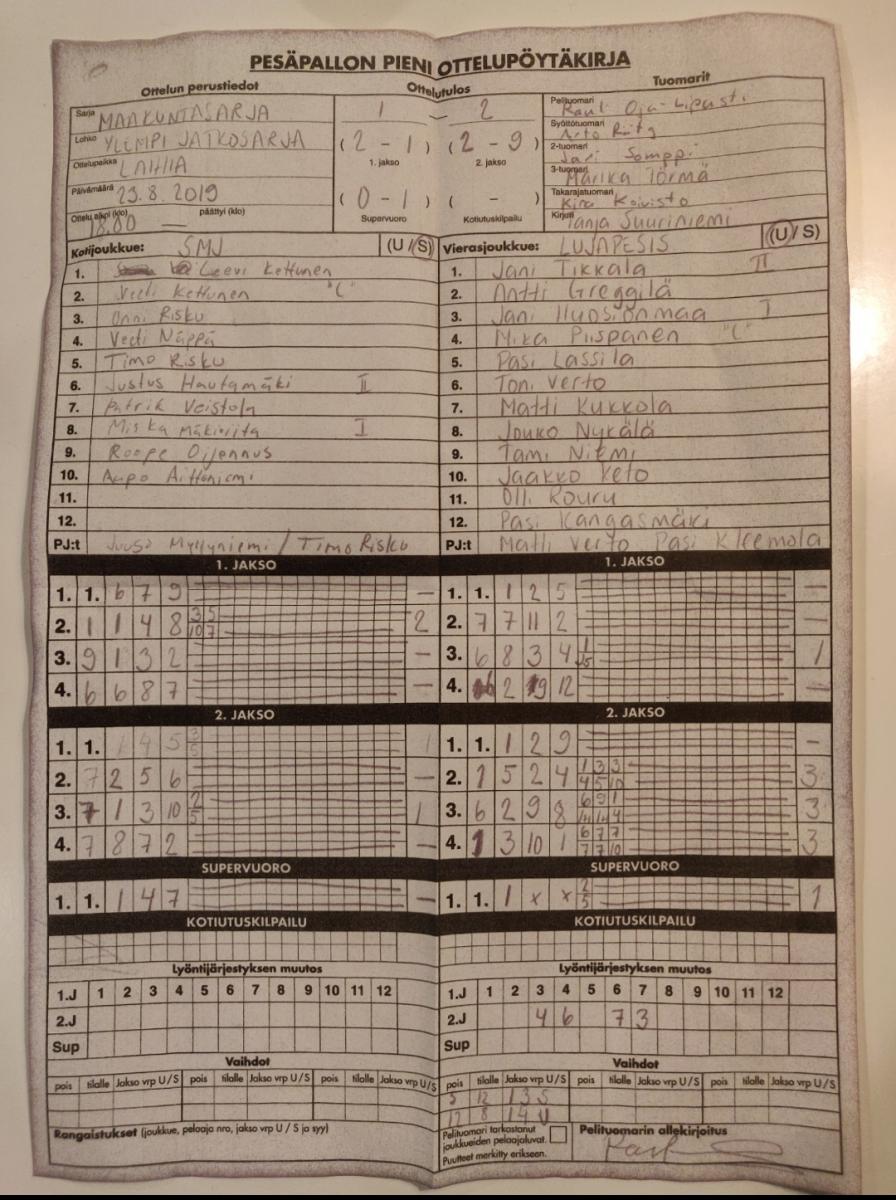 PESÄPALLON PIENI OTTELUPÖYTÄKIRJA
Ottelun perustiedot
Sarja MAAKUNTASARJA
Lohko YLEMPI JATKOSARJA
Ottelupaikka LAIHIA
Päivämäärä 23.8.2019
Ottelu alkoi (klo) 18.00 päättyi (klo) —
Ottelutulos
1 – 2
(2 - 1) (2 - 9)
1. jakso 2. jakso
(0 - 1) ( - )
Supervuoro Kotiutuskilpailu
Tuomarit
Pelituomari Raul Oja-Lipasti
Syöttötuomari Arto
2-tuomari Jari Somppi
3-tuomari Marika Törmä
Takarajatuomari Kira Koivisto
Kirjuri Tanja Suuriniemi
Kotijoukkue: SMJ (U / S)
1. Leevi Kettunen
2. Veeti Kettunen "C"
3. Onni Risku
4. Veeti Näppä
5. Timo Risku
6. Justus Hautamäki II
7. Patrik Veistola
8. Miska I
9. Roope Ojjennus
10. Aittoniemi
11.
12.
PJ:t Juuso Myllyniemi / Timo Risku
Vierasjoukkue: LUJAPESIS (U / S)
1. Jani Tikkala II
2. Antti Greggilä
3. Jani Huosionmaa I
4. Mika Piispanen "C"
5. Pasi Lassila
6. Toni Verto
7. Matti Kukkola
8. Jouko Nykälä
9. Tami Niemi
10. Jaakko Keto
11. Olli Rouru
12. Pasi Kangasmäki
PJ:t Matti Verto Pasi Kleemola
1. JAKSO
1. 1. 6 7 9 —
2. 1 1 4 8 3 5 2
10 7
3. 9 1 3 2 —
4. 6 6 8 7 —
2. JAKSO
1. 1. 1 4 5 3 1
5
2. 7 2 5 6 —
3. 7 1 3 10 2 1
5
4. 7 8 7 2 —
SUPERVUORO
1. 1. 1 4 7 —
KOTIUTUSKILPAILU
Lyöntijärjestyksen muutos
1.J 1 2 3 4 5 6 7 8 9 10 11 12
2.J
Sup
Vaihdot
pois tilalle Jakso vrp U/S pois tilalle Jakso vrp U/S pois tilalle Jakso vrp U/S
Rangaistukset (joukkue, pelaaja nro, jakso vrp U / S ja syy)
1. JAKSO
1. 1. 1 2 5 —
2. 7 7 11 2 —
3. 6 8 3 4 1 1
5
4. 2 9 12 —
2. JAKSO
1. 1. 1 2 9 -
2. 1 5 2 4 1 3 3 3
4 5 10
3. 6 2 9 8 6 9 1 3
4. 1 3 10 1 6 7 7 3
7 7 10
SUPERVUORO
1. 1. 1 x x 2 1
5
KOTIUTUSKILPAILU
Lyöntijärjestyksen muutos
1.J 1 2 3 4 5 6 7 8 9 10 11 12
2.J 4 6 7 3
Sup
Vaihdot
pois tilalle Jakso vrp U/S pois tilalle Jakso vrp U/S pois tilalle Jakso vrp U/S
5 12 1 3 S
12 8 1 4 U
Pelituomari tarkastanut
joukkueiden pelaajaluvat.
Puutteet merkitty erikseen.
Pelituomarin allekirjoitus